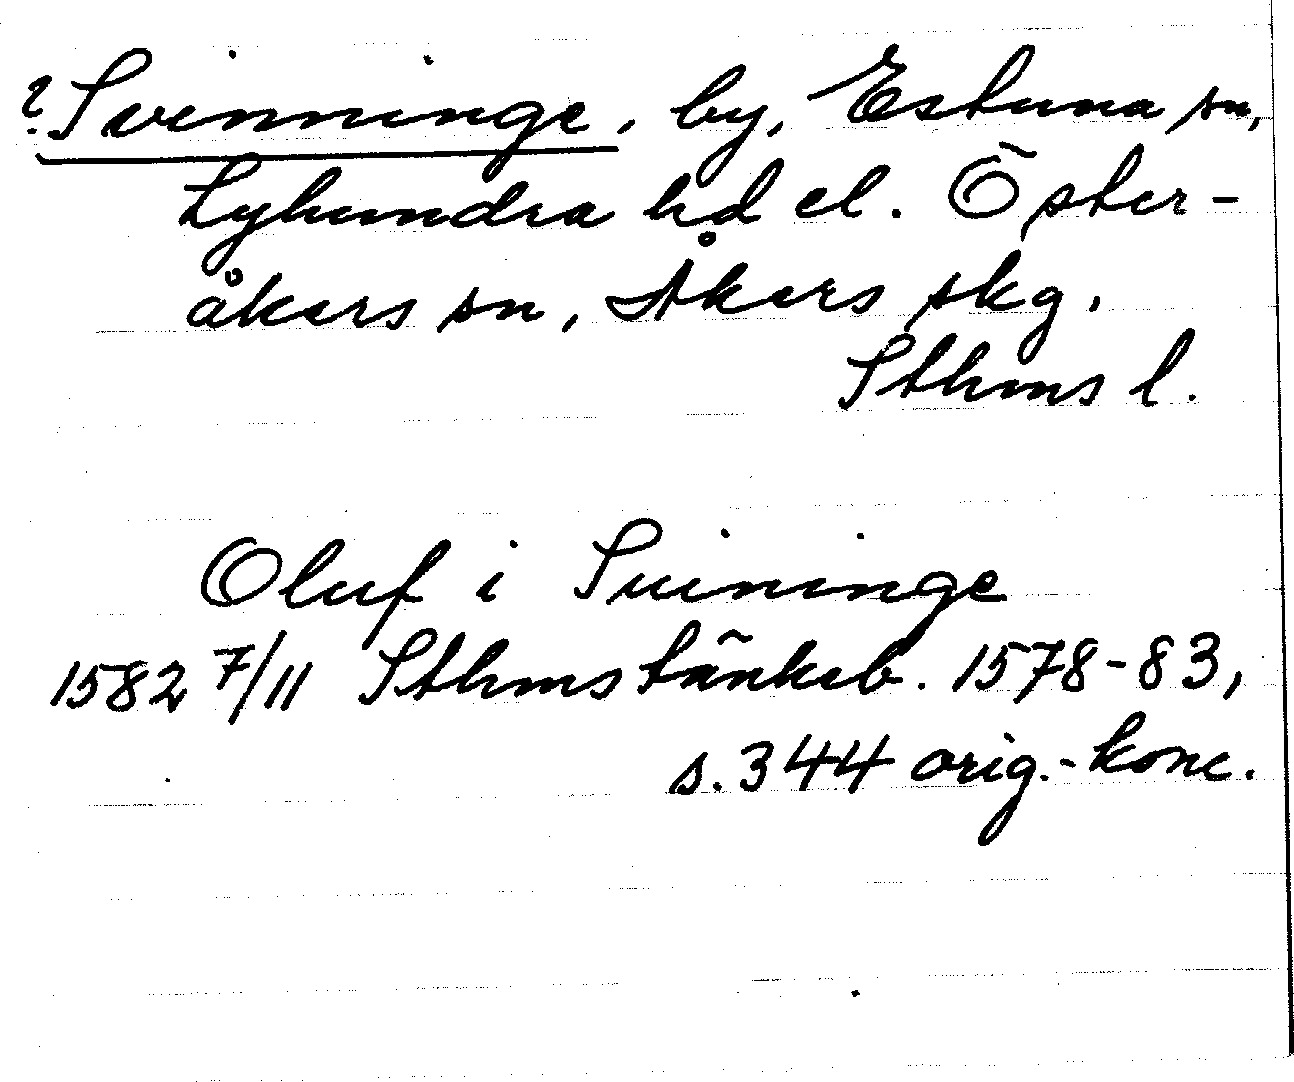 ? Svinninge, by, Estuna sn,
Lyhundra hd el. Öster-
åkers sn, Åkers skg.
Sthms l.
Oluf i Suininge
1582 7/11 Sthms tänkeb. 1578-83,
s. 344 orig.-konc.